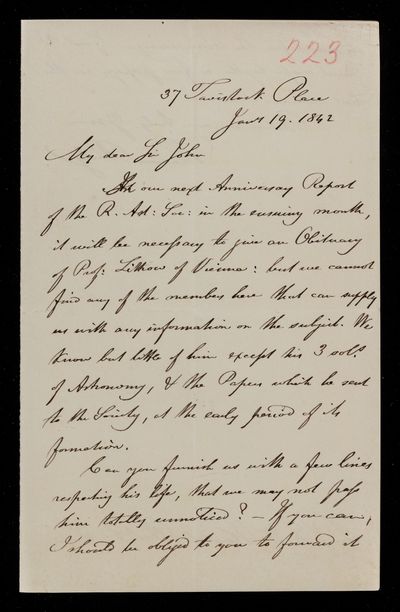 223
37 Tavistock Place
Jany 19. 1842
My dear Sir John
In our next Anniversary Report
of the R. Ast: Soc: in the ensuing month,
it will be necessary to give an Obituary
of Prof: Littrow of Vienna: but we cannot
find any of the members here that can supply
us with any information on the subject. We
know but little of him except his 3 vols.
of Astronomy, & the Papers which he sent
to the Society, at the early period of its
formation.
Can you furnish us with a few lines
respecting his life, that we may not pass
him totally unnoticed? - If you can,
I should be obliged to you to forward it